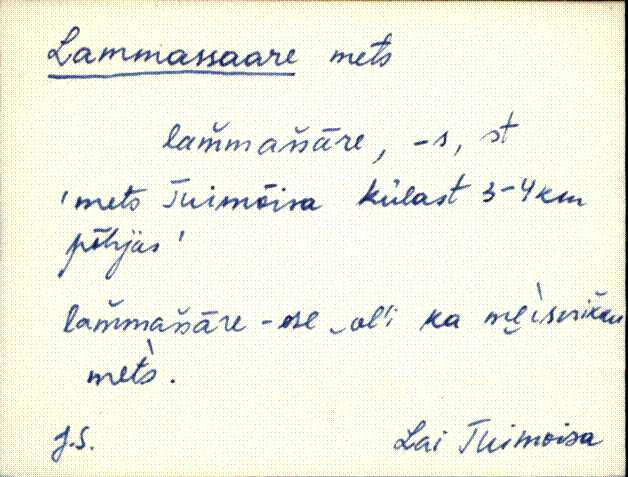 Lammassaare mets
lam̆mas̆s̆āre, -s, st
'mets Tuimõisa külast 3-4 km
põhjas'
lam̆mas̆s̆āre -se ‿ol'i ka
mèts.
J.S. Lai Tuimõisa